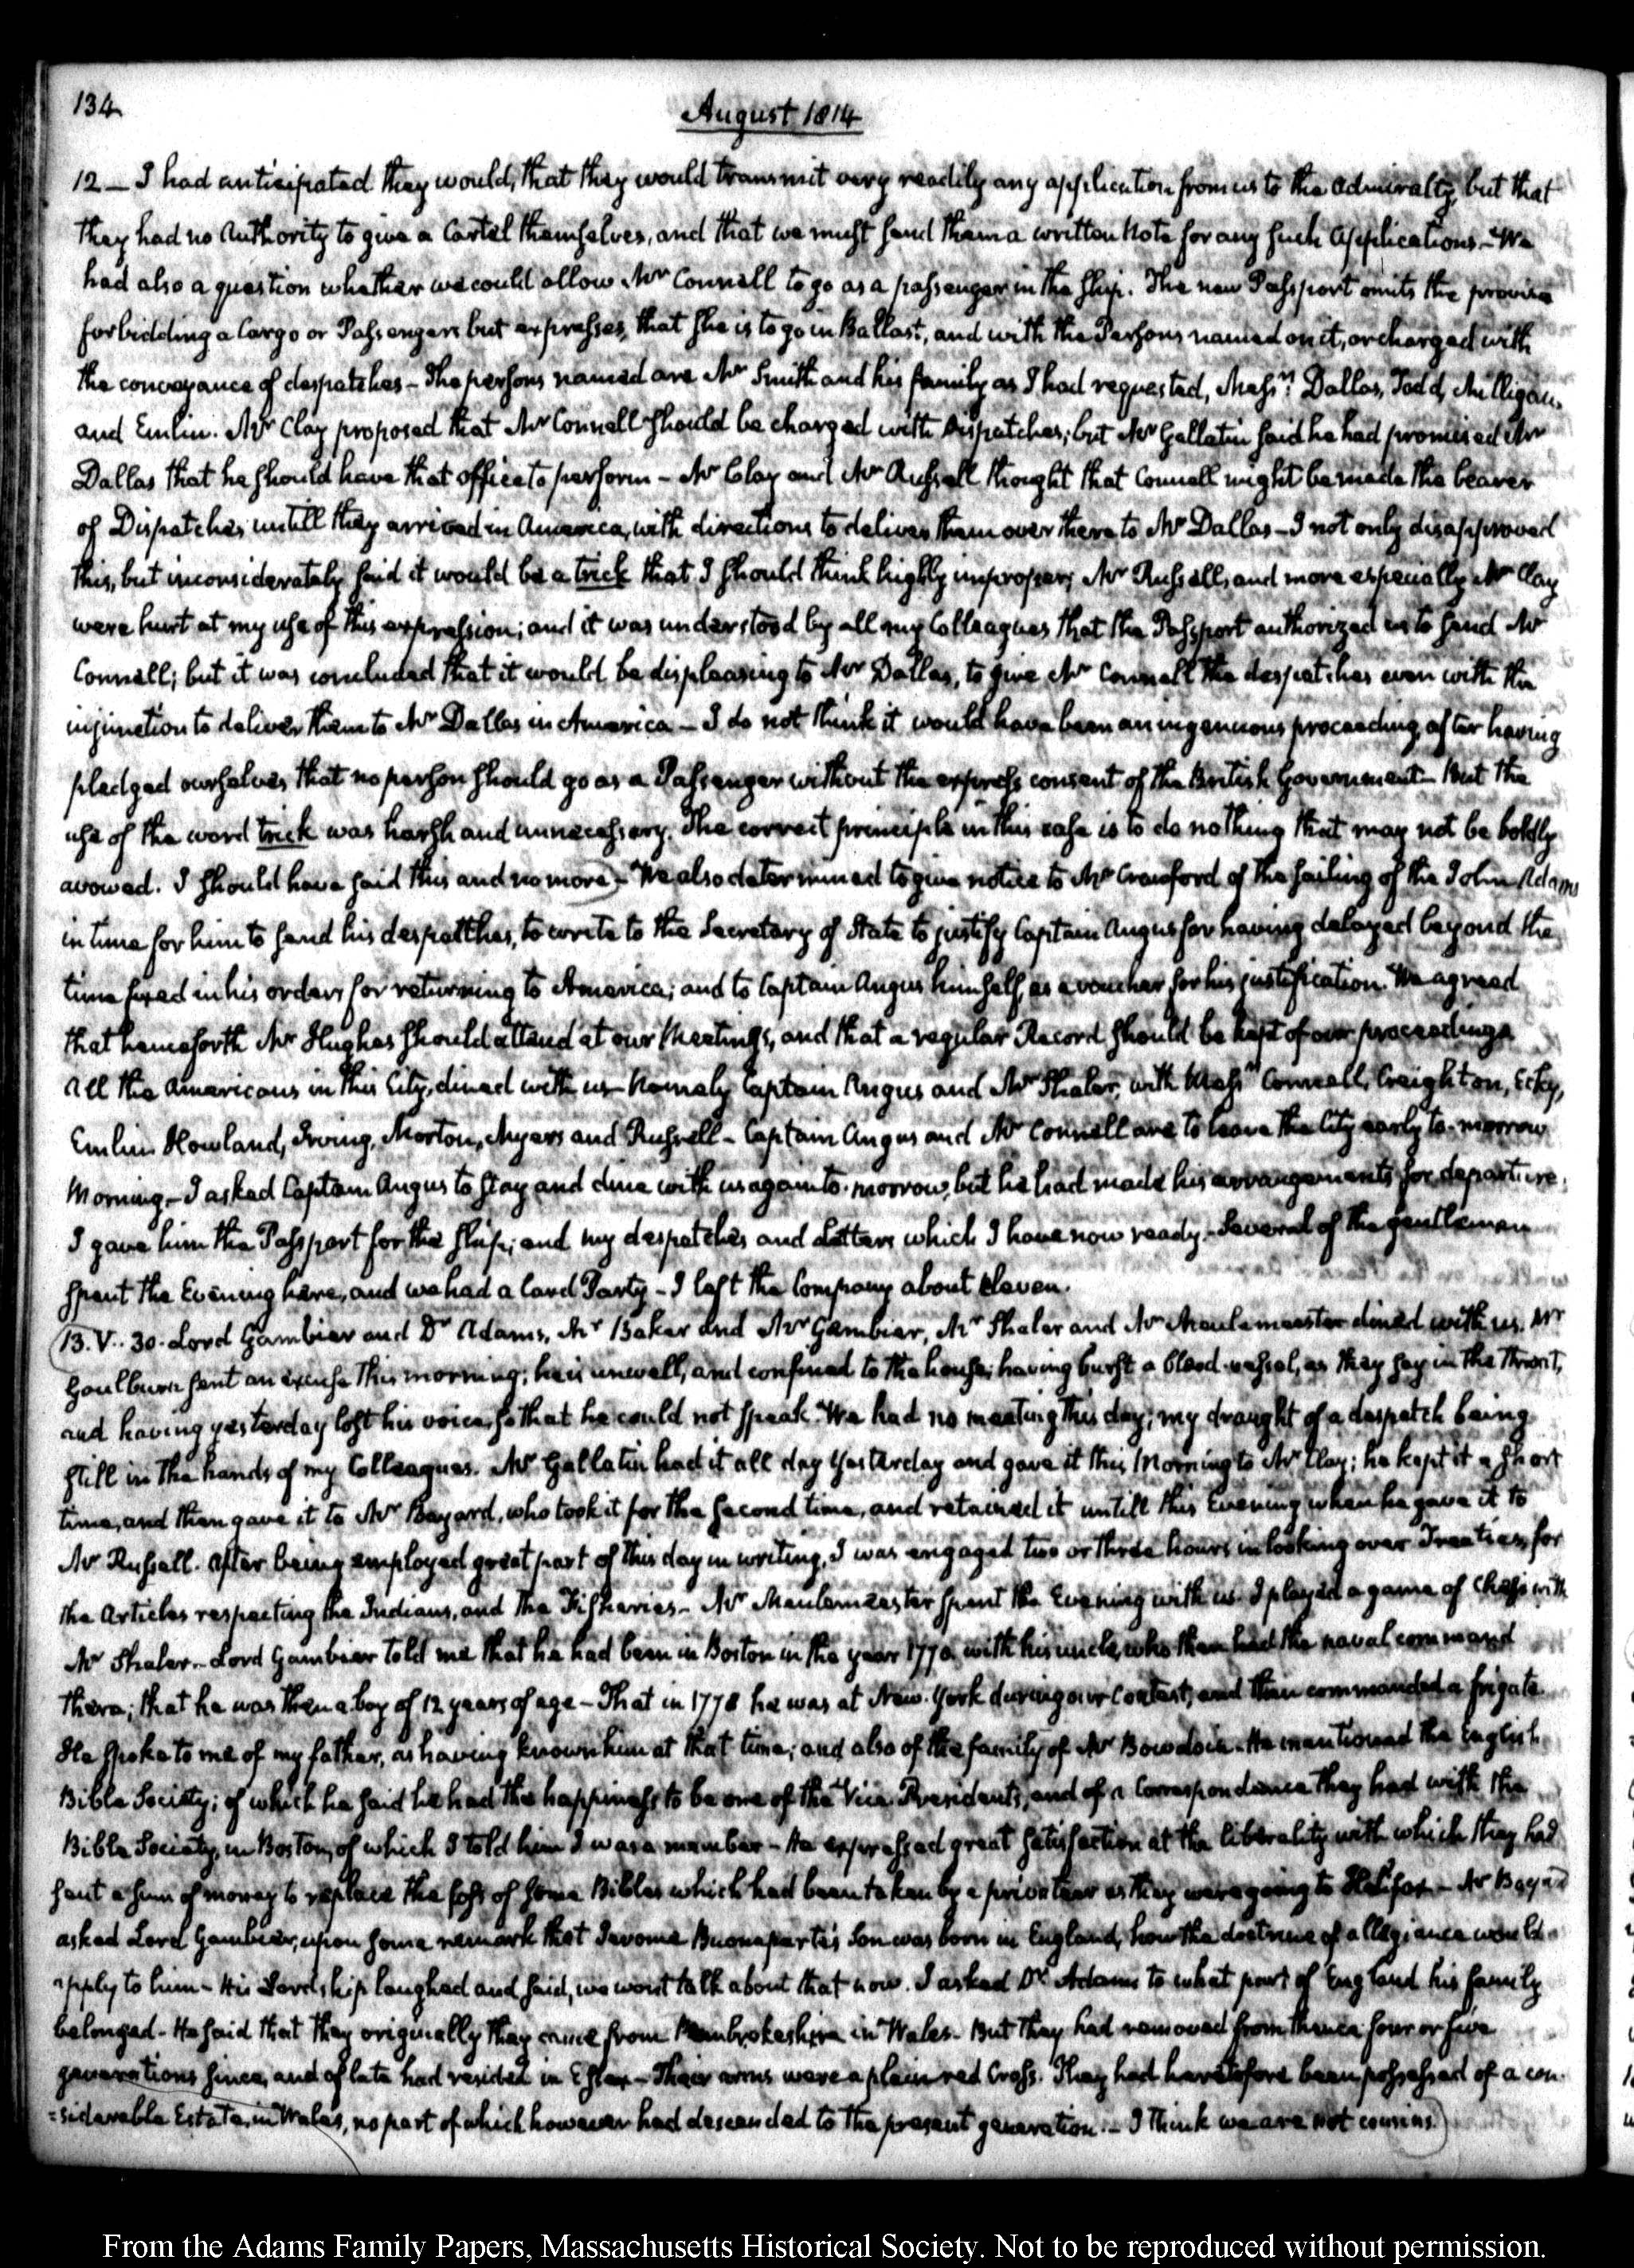 134
August 1814
12 — I had anticipated they would, that they would transmit very readily any application from us to the Admiralty, but that
they had no Authority to give a Cartel themselves, and that we must send them a written Note for any such Applications. — We
had also a question whether we could allow Mr Connell to go as a passenger in the ship. The new Passport omits the proviso
forbidding a Cargo or Passengers but expresses, that she is to go in Ballast, and with the Persons named on it, or charged with
the conveyance of despatches — The persons named are Mr Smith and his family as I had requested, Messrs. Dallas, Todd, Milligan,
and Emlin. Mr Clay proposed that Mr Connell should be charged with Dispatches; but Mr Gallatin said he had promised Mr
Dallas that he should have that office to perform — Mr Clay and Mr Russell thought that Connell might be made the bearer
of Dispatches untill they arrived in America, with directions to deliver them over there to Mr Dallas — I not only disapproved
this, but inconsiderately said it would be a trick that I should think highly improper; Mr Russell, and more especially Mr Clay
were hurt at my use of this expression; and it was understood by all my Colleagues that the Passport authorized us to send Mr
Connell; but it was concluded that it would be displeasing to Mr Dallas, to give Mr Connell the despatches even with the
injunction to deliver them to Mr Dallas in America — I do not think it would have been an ingenuous proceeding, after having
pledged ourselves that no person should go as a Passenger without the express consent of the British Government — But the
use of the word trick was harsh and unnecessary. The correct principle in this case is to do nothing that may not be boldly
avowed. I should have said this and no more — We also determined to give notice to Mr Crawford of the sailing of the John Adams
in time for him to send his despatches, to write to the Secretary of State to justify Captain Angus for having delayed beyond the
time fixed in his orders for returning to America; and to Captain Angus himself, as a voucher for his justification. We agreed
that henceforth Mr Hughes should attend at our Meetings, and that a regular Record should be kept of our proceedings
All the Americans in this City, dined with us — Namely Captain Angus and Mr Shaler, with Messrs Connell, Creighton, Ecky,
Emlin Howland, Irving, Morton, Myers and Russell — Captain Angus and Mr Connell are to leave the City early to-morrow
Morning — I asked Captain Angus to stay and dine with us again to-morrow, but he had made his arrangements for departure.
I gave him the Passport for the ship; and my despatches and Letters which I have now ready. — Several of the gentlemen
spent the Evening here, and we had a Card Party — I left the Company about eleven.
13. V.. 30. Lord Gambier and Dr Adams, Mr Baker and Mr Gambier, Mr Shaler and Mr Meulemeester dined with us. Mr
Goulburn sent an excuse this morning; he is unwell, and confined to the house; having burst a blood-vessel, as they say in the throat,
and having yesterday lost his voice, so that he could not speak. We had no meeting this day; my draught of a despatch being
still in the hands of my Colleagues. Mr Gallatin had it all day Yesterday and gave it this Morning to Mr Clay; he kept it a short
time, and then gave it to Mr Bayard, who took it for the second time, and retained it untill this Evening when he gave it to
Mr Russell. After being employed great part of this day in writing, I was engaged two or three hours in looking over Treaties, for
the Articles respecting the Indians, and the Fisheries — Mr Meulemeester spent the Evening with us. I played a game of Chess with
Mr Shaler. — Lord Gambier told me that he had been in Boston in the year 1770 with his uncle, who then had the naval command
there; that he was then a boy of 12 years of age — That in 1778 he was at New-York during our Contest, and then commanded a frigate
He spoke to me of my father, as having known him at that time; and also of the family of Mr Bowdoin. He mentioned the English
Bible Society; of which he said he had the happiness to be one of the Vice Presidents, and of a Correspondence they had with the
Bible Society, in Boston, of which I told him I was a member — He expressed great satisfaction at the liberality with which they had
sent a sum of money to replace the loss of some Bibles which had been taken by a privateer as they were going to Halifax — Mr Bayard
asked Lord Gambier, upon some remark that Jerome Buonaparte's Son was born in England, how the doctrine of allegiance would
apply to him — His Lordship laughed and said, we wont talk about that now. I asked Dr Adams to what part of England his family
belonged — He said that they originally they came from Pembrokeshire in Wales — But they had removed from thence four or five
generations since, and of late had resided in Essex — Their arms were a plain red Cross. They had heretofore been possessed of a con-
=siderable Estate, in Wales, no part of which however had descended to the present generation. — I think we are not cousins.
From the Adams Family Papers, Massachusetts Historical Society. Not to be reproduced without permission.